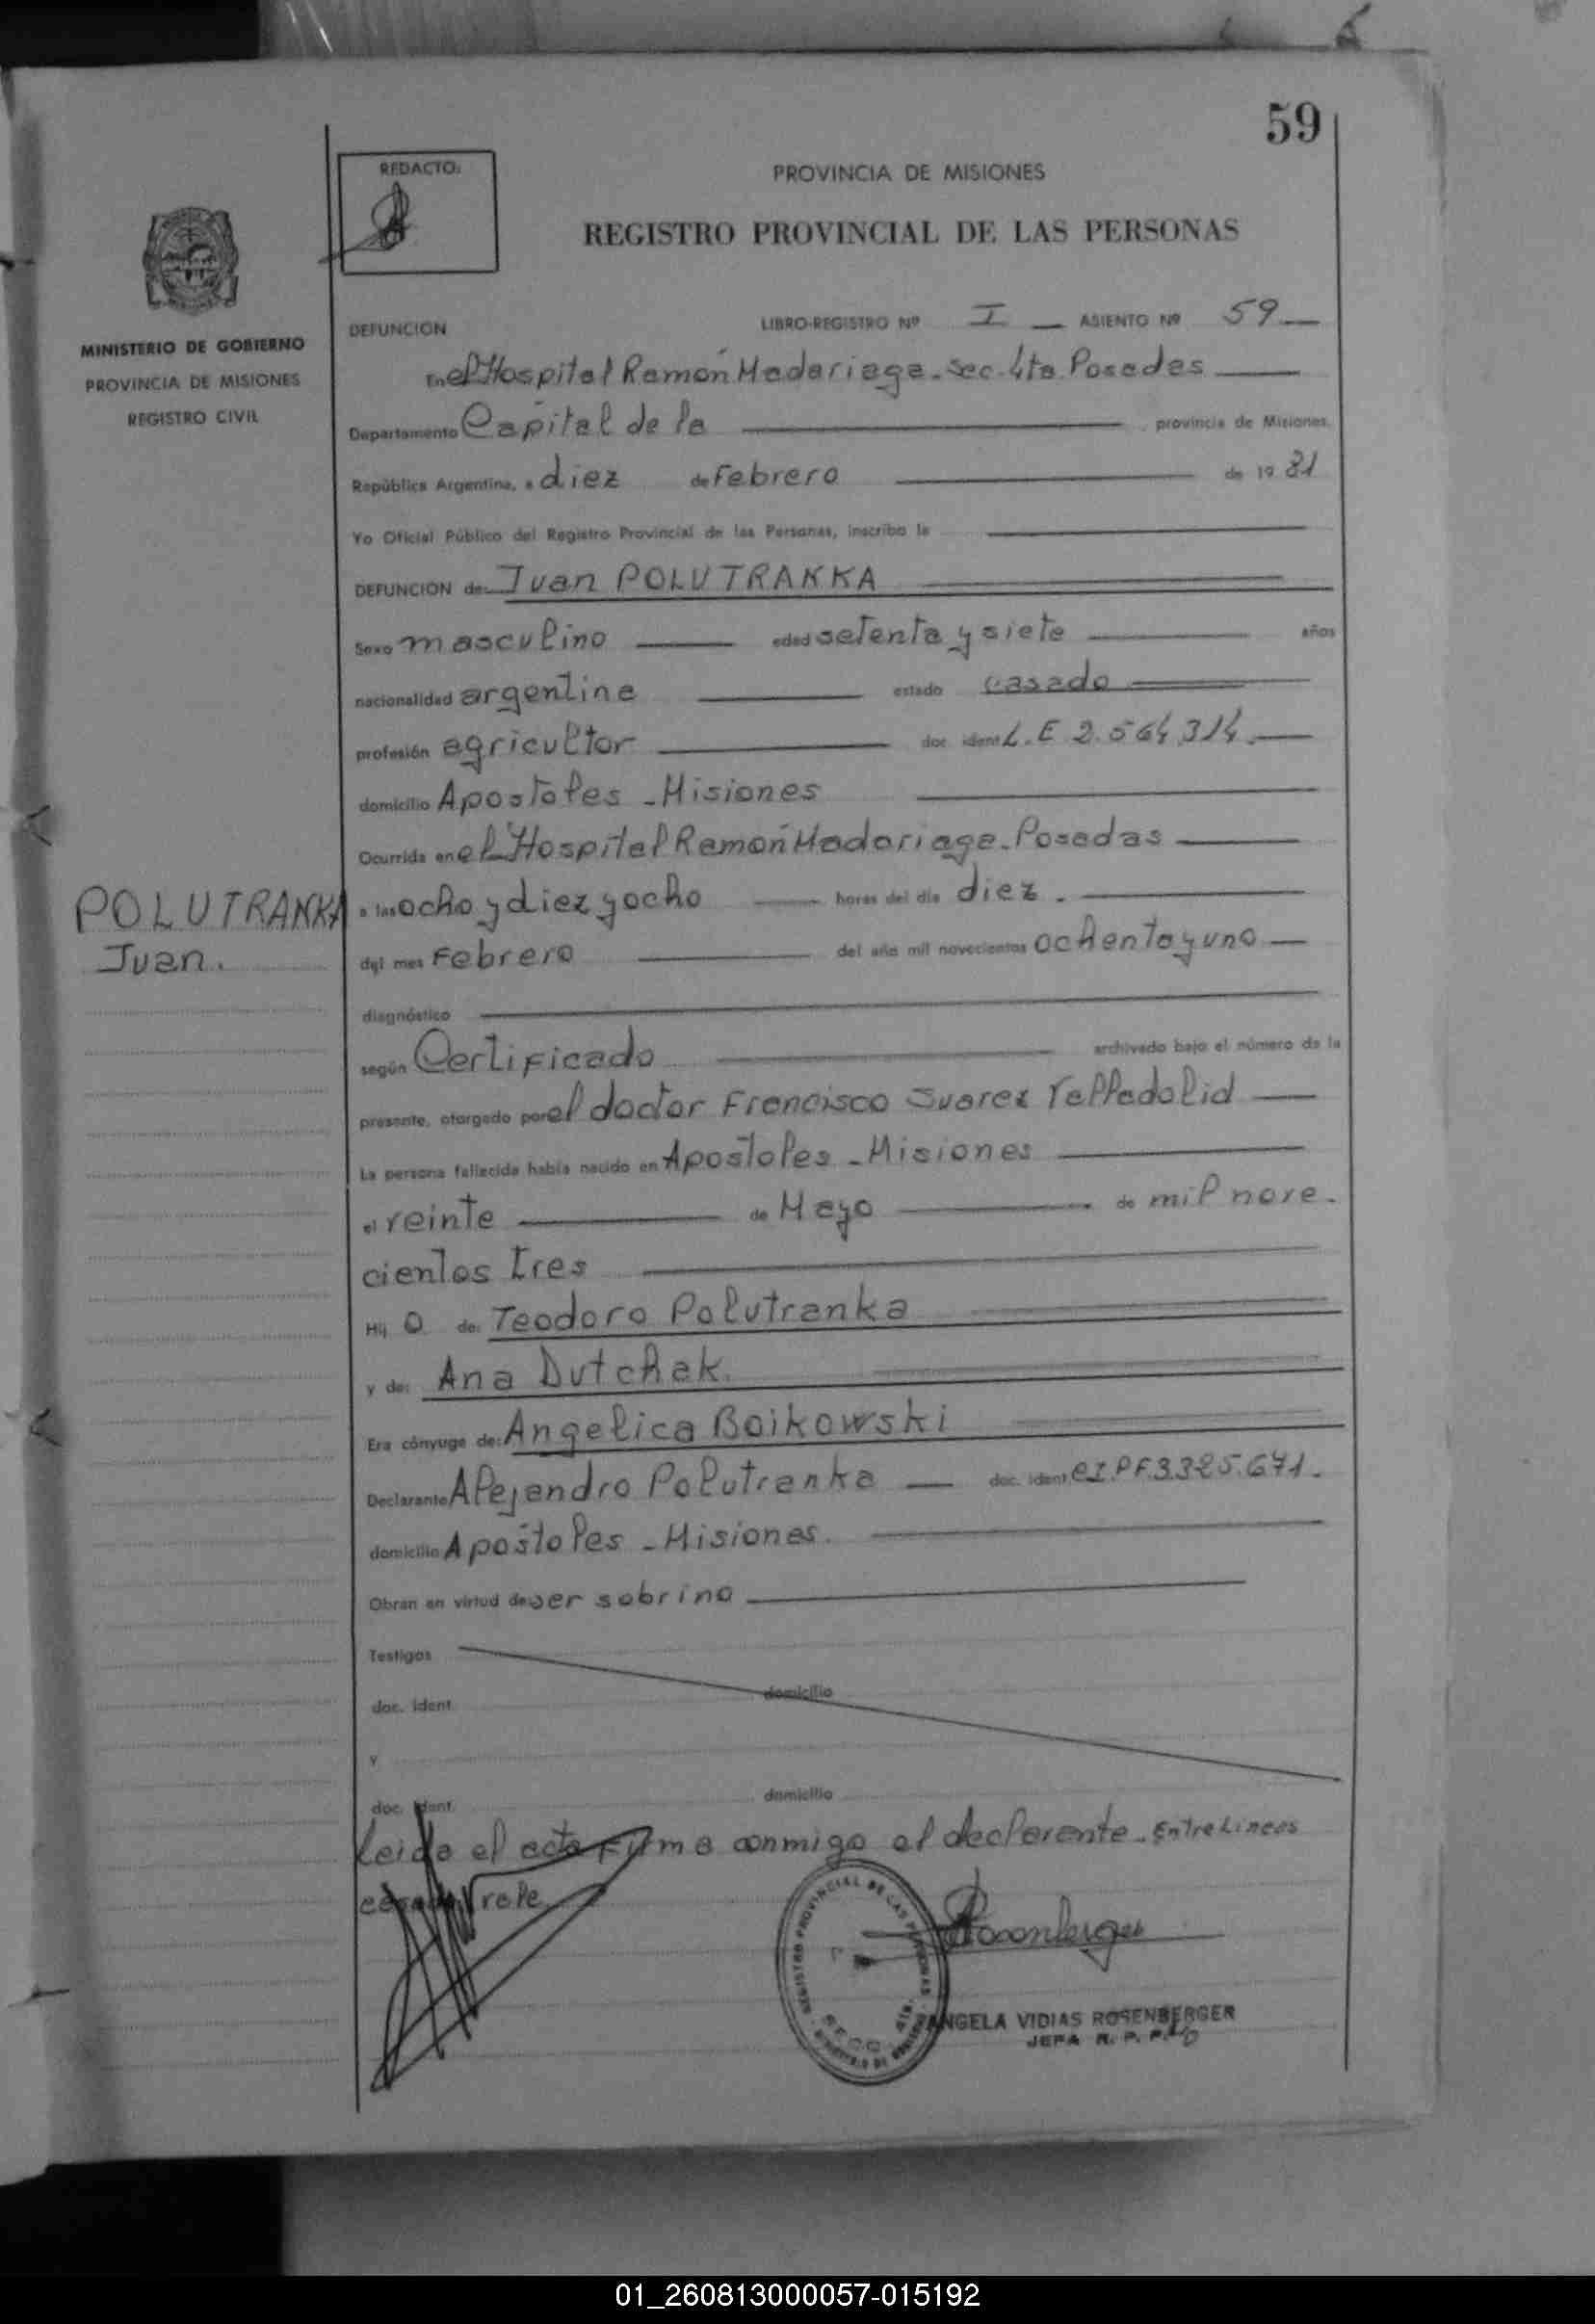 59
REDACTO:
PROVINCIA DE MISIONES
REGISTRO PROVINCIAL DE LAS PERSONAS
MINISTERIO DE GOBIERNO
PROVINCIA DE MISIONES
REGISTRO CIVIL
DEFUNCION LIBRO-REGISTRO Nº I ASIENTO Nº 59
En el Hospital Ramón Madariaga - Sec. 4ta. Posadas
Departamento Capital de la provincia de Misiones,
República Argentina, a diez de Febrero de 19 81
Yo Oficial Público del Registro Provincial de las Personas, inscribo la
DEFUNCION de: Juan POLUTRANKA
Sexo masculino edad setenta y siete años
nacionalidad argentina estado casado
profesión agricultor doc. ident. L.E 2.564.314.
domicilio Apostoles - Misiones
Ocurrida en el Hospital Ramón Madariaga - Posadas
POLUTRANKA
Juan.
a las ocho y diez y ocho horas del día diez.
del mes Febrero del año mil novecientos ochenta y uno
diagnóstico
según Certificado archivado bajo el número de la
presente, otorgado por el doctor Francisco Suarez Valladolid
La persona fallecida había nacido en Apostoles - Misiones
el veinte de Mayo de mil nove-
cientos tres
Hij o de: Teodoro Polutranka
y de: Ana Dutchak.
Era cónyuge de: Angelica Boikowski
Declarante Alejandro Polutranka doc. ident. CI.PF.3325.671.
domicilio Apostoles - Misiones.
Obran en virtud de ser sobrino
Testigos
doc. ident. domicilio
y
doc. ident. domicilio
Leida el acta Firma conmigo el declarante. Entre Lineas
casado vale
REGISTRO PROVINCIAL DE LAS PERSONAS
Rosenberger
ANGELA VIDIAS ROSENBERGER
JEFA R. P. P.
01_260813000057-015192